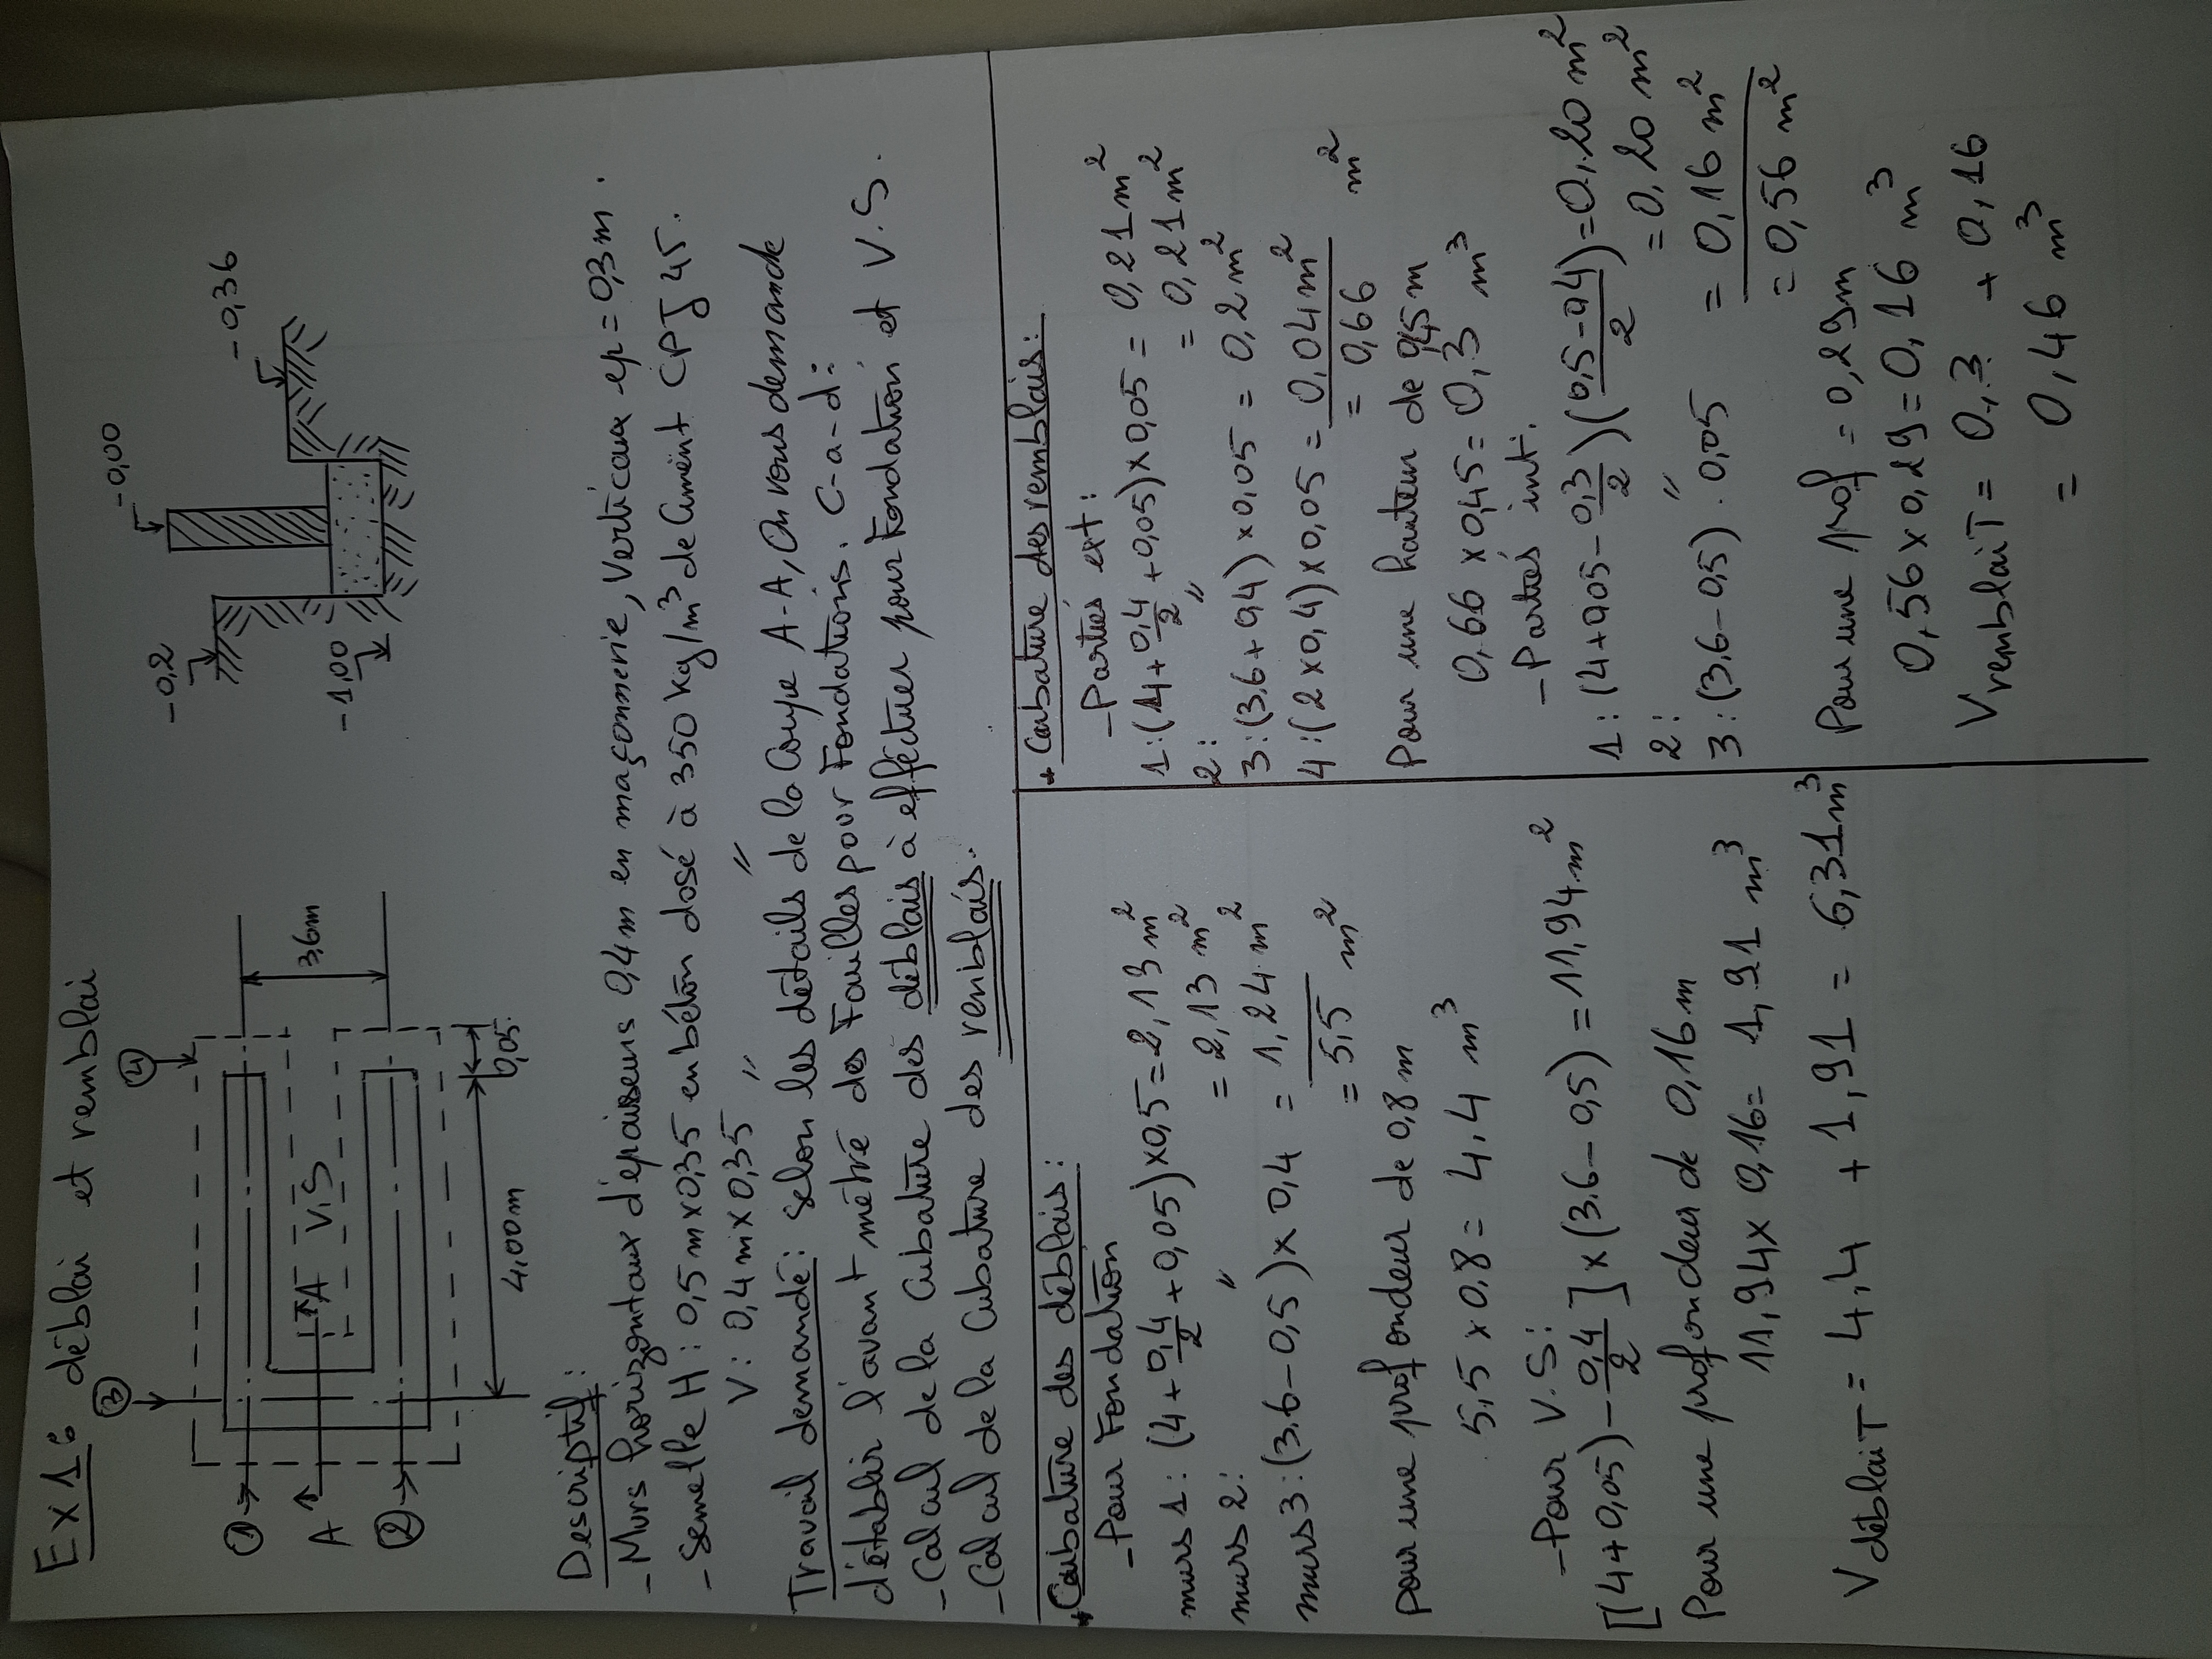 Ex 1: déblai et remblai
③
④
①
A
A
②
V.S
3,6m
4,00m
0,05
-0,2
-0,00
-0,36
-1,00
Descriptif:
- Murs horizontaux d'épaisseurs 0,4m en maçonnerie, Verticaux ep = 0,3m.
- Semelle H : 0,5 m x 0,35 en béton dosé à 350 kg/m³ de Ciment CPJ 45.
V : 0,4 m x 0,35 " "
Travail demandé: Selon les détails de la Coupe A-A, On vous demande
d'établir l'avant métré des Fouilles pour Fondations. C-a-d:
- Calcul de la Cubature des déblais à effectuer pour Fondation et V.S.
- Calcul de la Cubature des remblais.
+ Cubature des déblais:
- Pour Fondation
murs 1 : (4 + 0,4/2 + 0,05) x 0,5 = 2,13 m²
murs 2 : " = 2,13 m²
murs 3 : (3,6 - 0,5) x 0,4 = 1,24 m²
= 5,5 m²
Pour une profondeur de 0,8 m
5,5 x 0,8 = 4,4 m³
- Pour V.S:
[(4 + 0,05) - 0,4/2] x (3,6 - 0,5) = 11,94 m²
Pour une profondeur de 0,16 m
11,94 x 0,16 = 1,91 m³
V déblai T = 4,4 + 1,91 = 6,31 m³
+ Cubature des remblais:
- Parties ext :
1 : (4 + 0,4/2 + 0,05) x 0,05 = 0,21 m²
2 : " = 0,21 m²
3 : (3,6 + 0,4) x 0,05 = 0,2 m²
4 : (2 x 0,4) x 0,05 = 0,04 m²
= 0,66 m²
Pour une hauteur de 0,45 m
0,66 x 0,45 = 0,3 m³
- Parties int.
1 : (4 + 0,05 - 0,3/2)(0,5-0,4/2) = 0,20 m²
2 : " = 0,20 m²
3 : (3,6 - 0,5) . 0,05 = 0,16 m²
= 0,56 m²
Pour une prof = 0,29m
0,56 x 0,29 = 0,16 m³
V remblai T = 0,3 + 0,16
= 0,46 m³